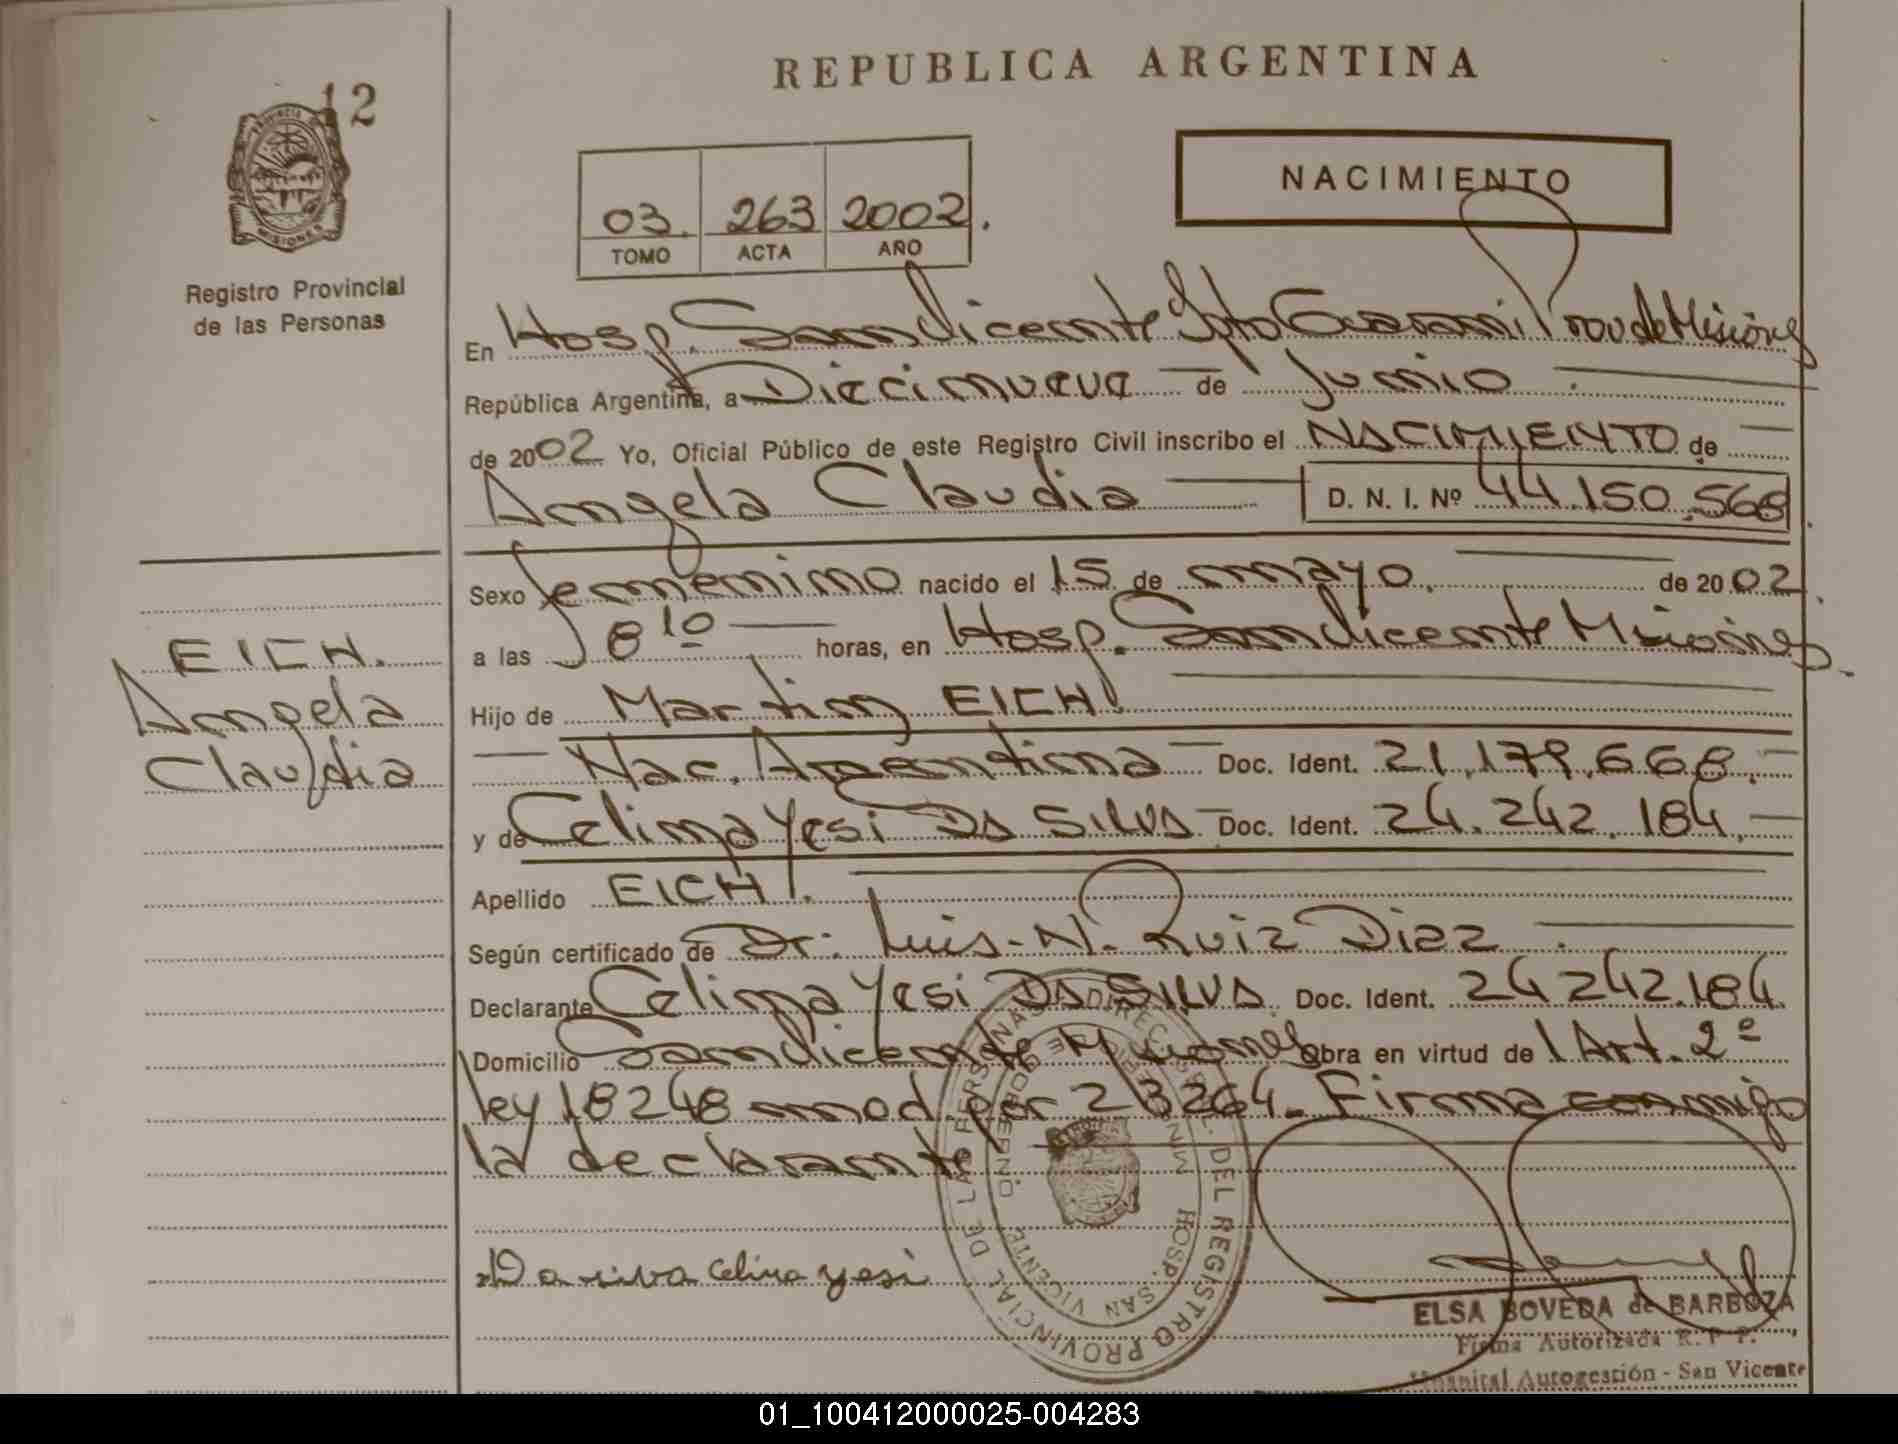 REPUBLICA ARGENTINA
12
PROVINCIA DE
MISIONES
Registro Provincial
de las Personas
03. 263 2002.
TOMO ACTA AÑO
NACIMIENTO
En Hosp. San Vicente Dpto Guarani Prov de Misiones
República Argentina, a Diecinueve de Junio.
de 2002 Yo, Oficial Público de este Registro Civil inscribo el NACIMIENTO de
Angela Claudia D. N. I. Nº 44.150.568
Sexo femenino nacido el 15 de mayo. de 2002.
a las 8 10 horas, en Hosp. San Vicente Misiones.
EICH.
Angela
Claudia
Hijo de Martin EICH.
Nac. Argentina Doc. Ident. 21.179.668.
y de Celina Yesi DA SILVA Doc. Ident. 24.242.184.
Apellido EICH.
Según certificado de Dr. Luis-N. Ruiz Diaz.
Declarante Celina Yesi DA SILVA Doc. Ident. 24 242.184.
Domicilio San Vicente Misiones obra en virtud del Art. 2º
ley 18248 mod. por 23264. Firma conmigo
la declarante
Da silva Celina yesi
DIREC. GRAL. DEL REGISTRO PROVINCIAL DE LAS PERSONAS
MINISTERIO DE GOBIERNO
HOSP. SAN VICENTE
ELSA BOVEDA de BARBOZA
Firma Autorizada R. P. P.
Hospital Autogestión - San Vicente
01_100412000025-004283